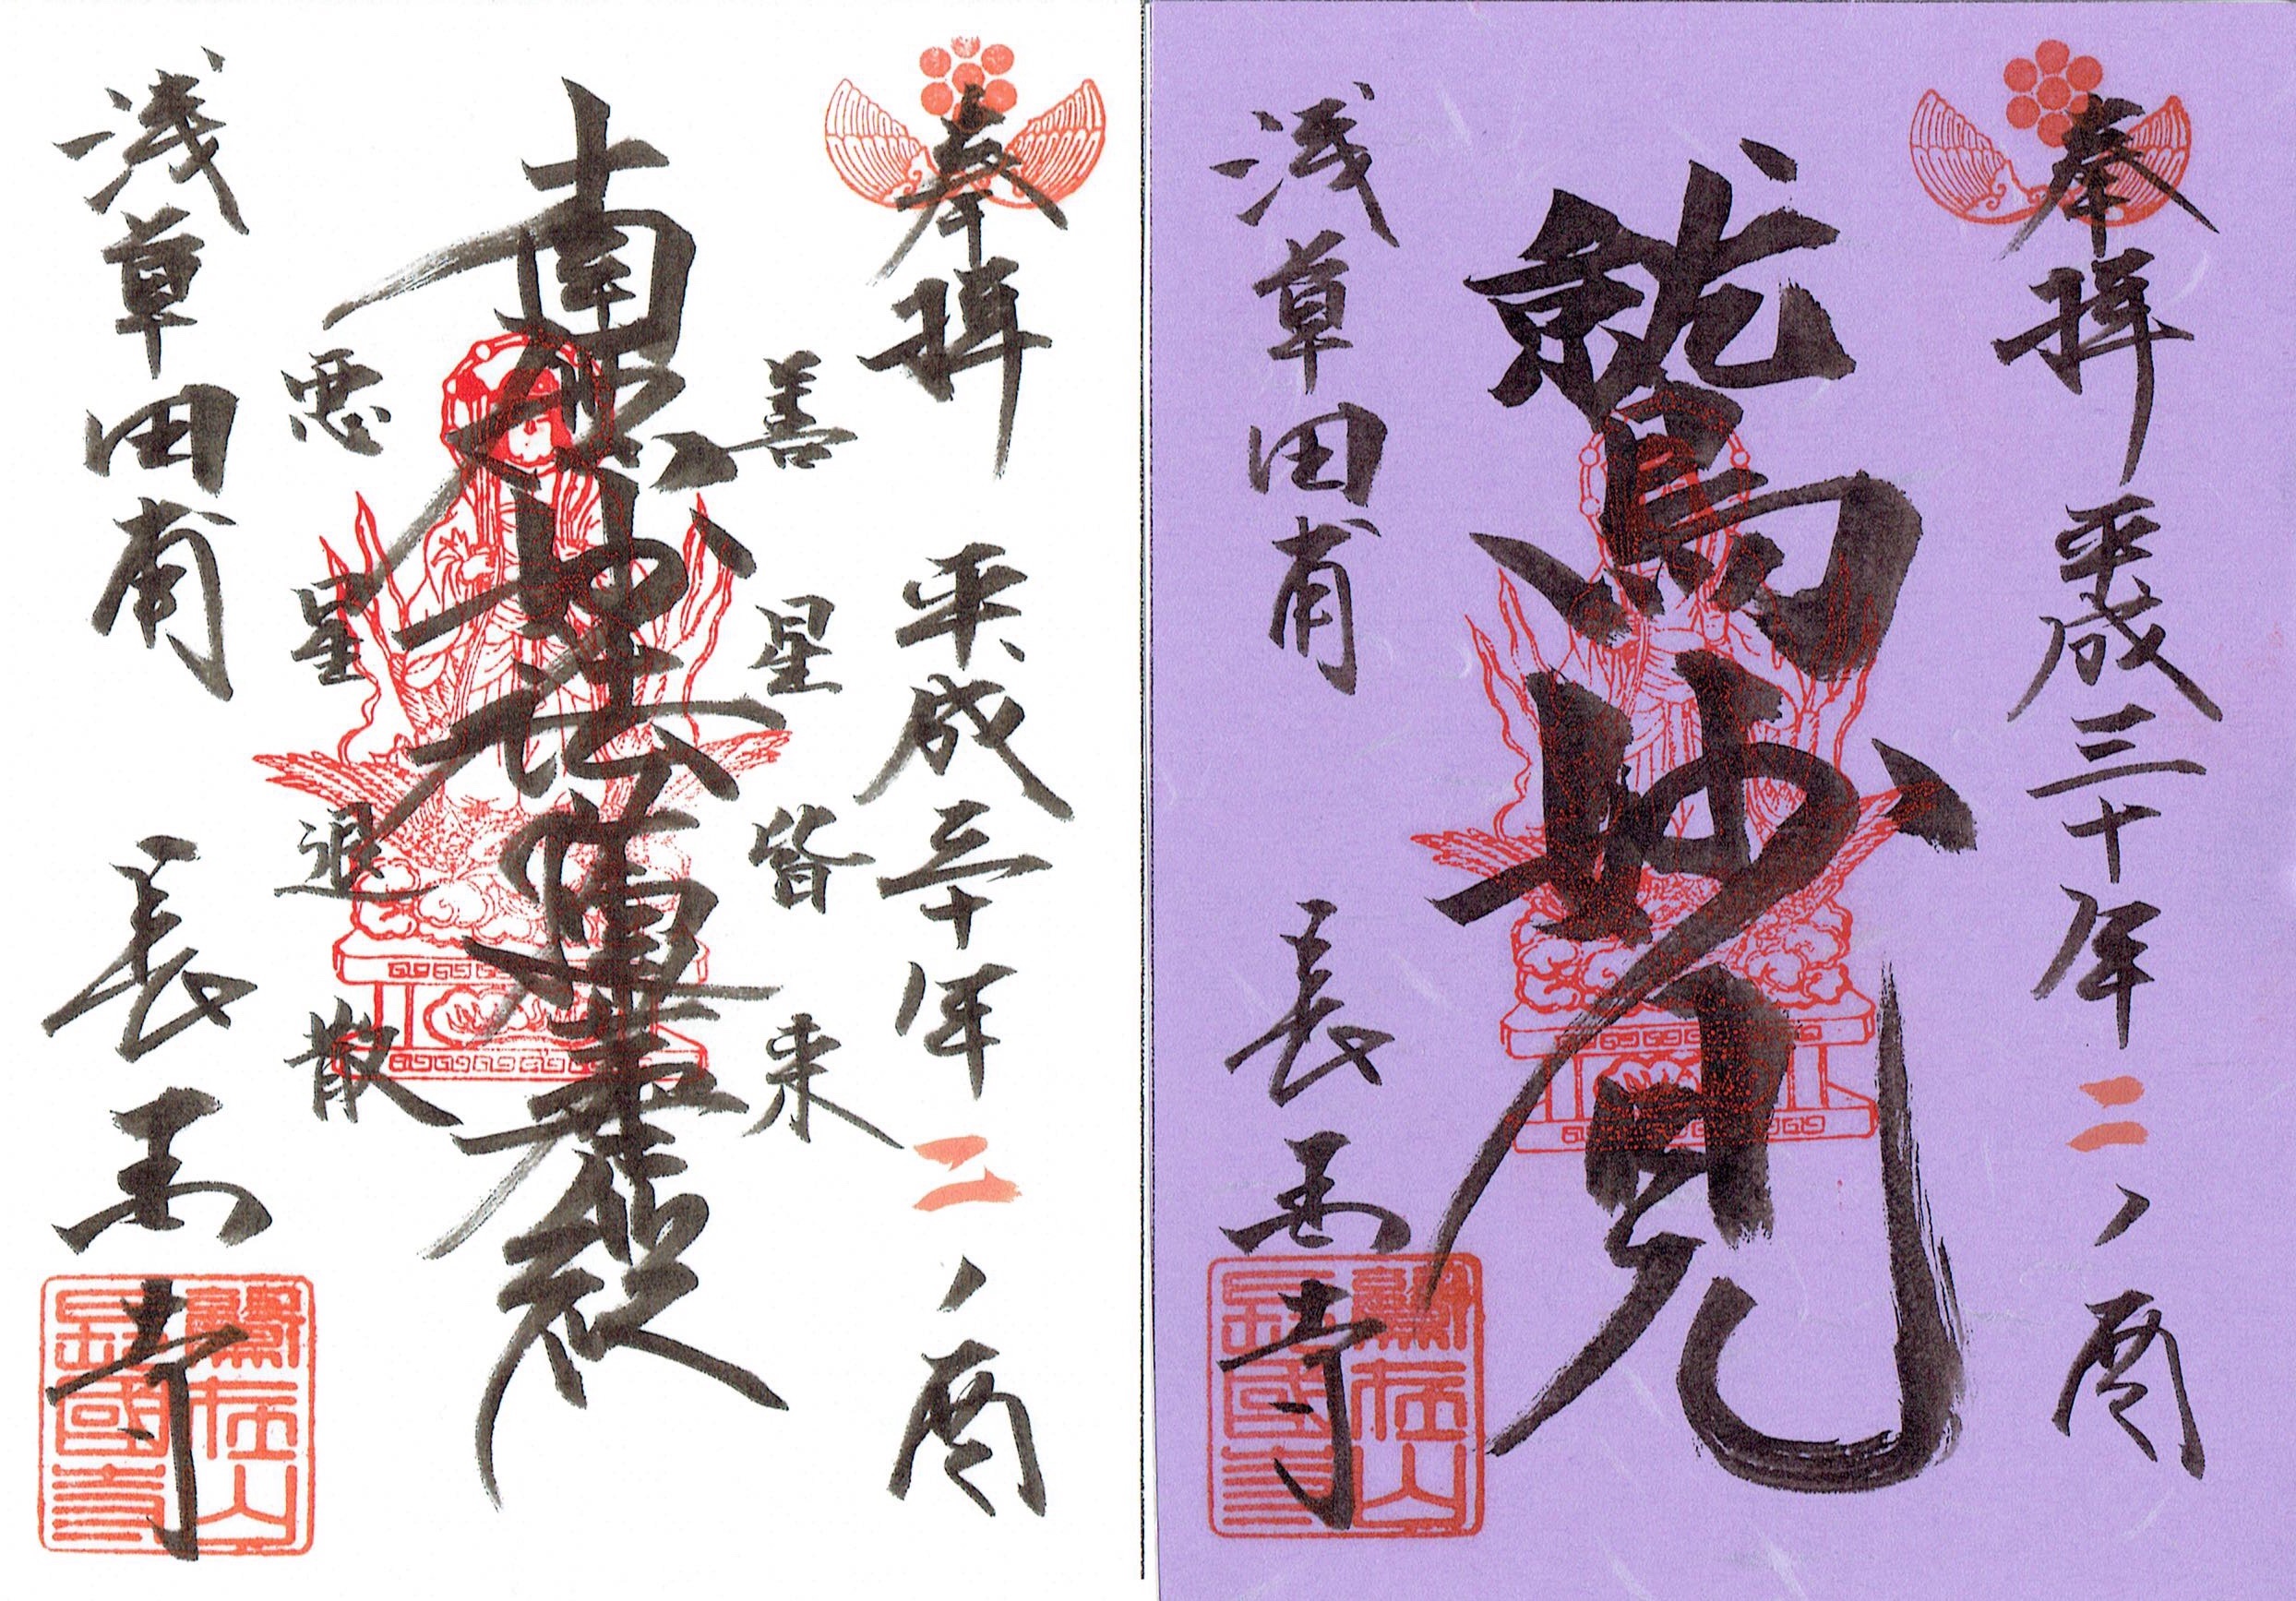 奉拝 平成三十年 二ノ酉
鷲妙見
浅草田甫 長国寺
鷲在山
長國寺
奉拝 平成三十年 二ノ酉
善星皆来
南無妙法蓮華経
悪星退散
浅草田甫 長国寺
鷲在山
長國寺